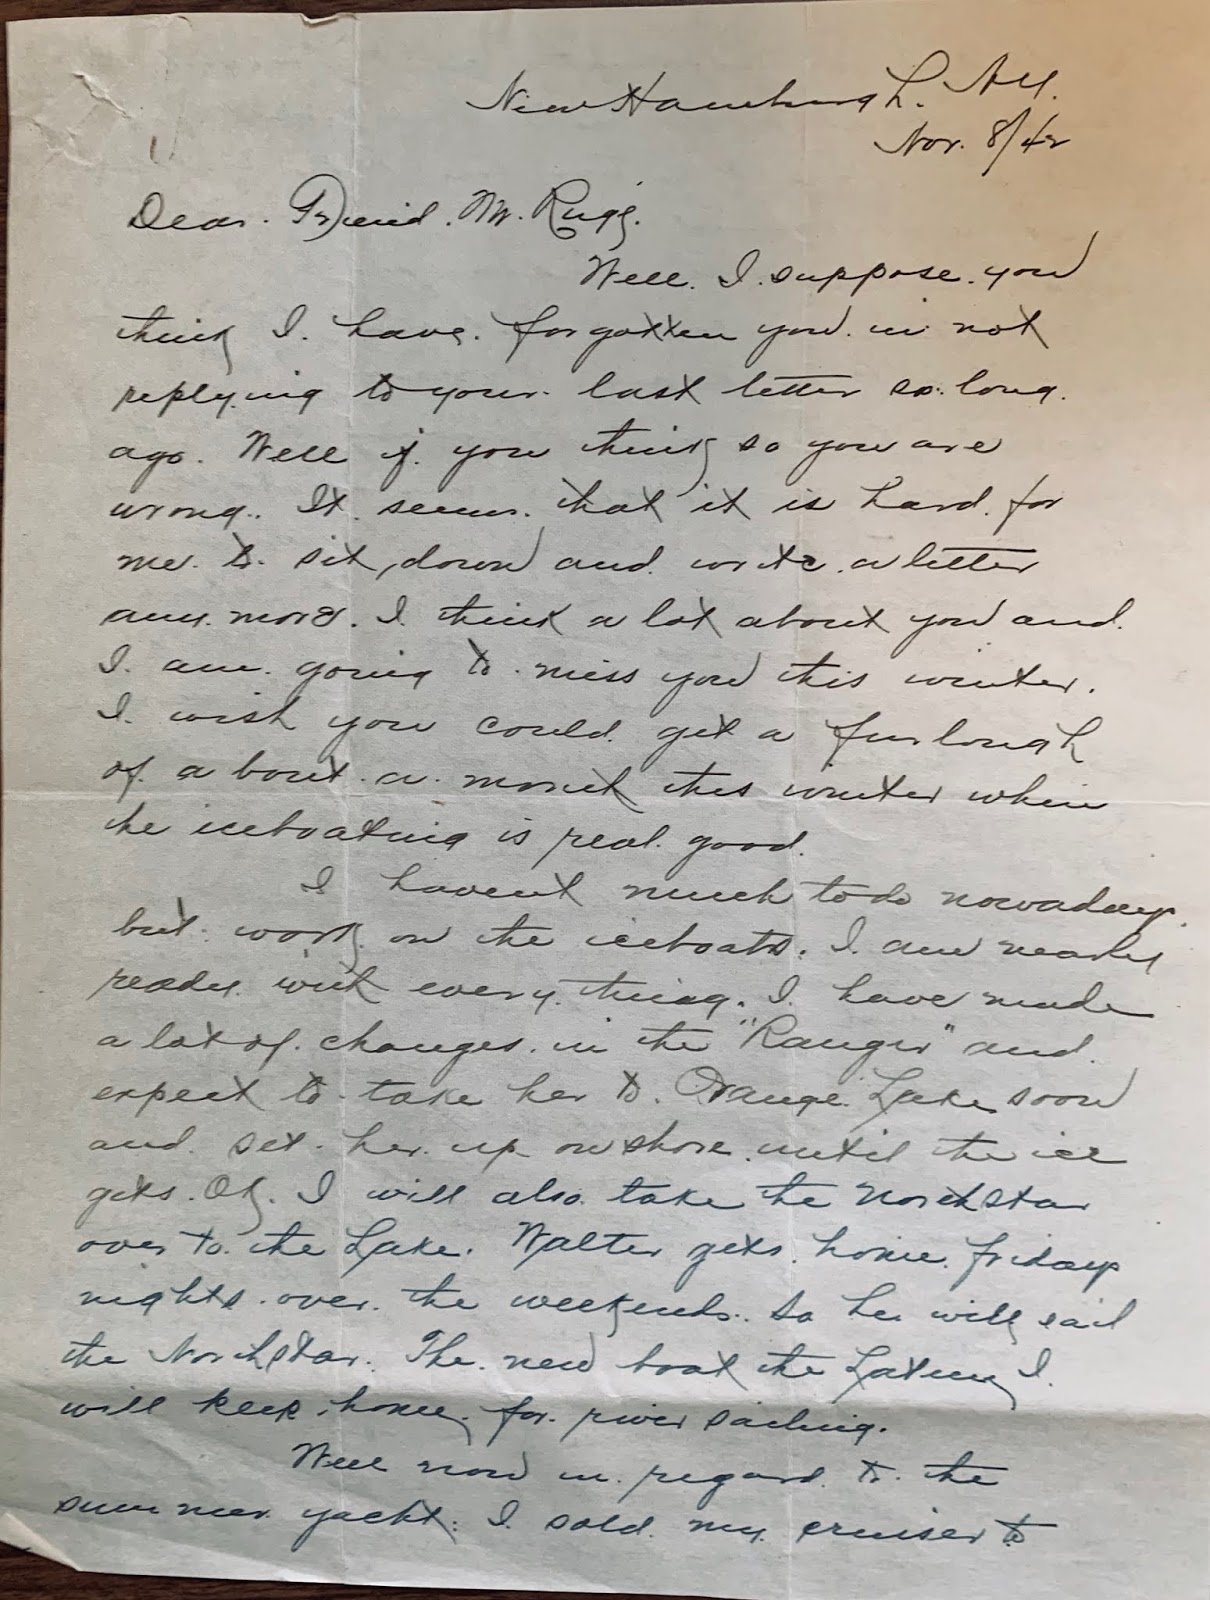 New Hamburgh. N.Y.
Nov. 8/42
Dear Friend. Mr. Rugg.
Well. I suppose you
think I have forgotten you in not
replying to your last letter so long
ago. Well if you think so you are
wrong. It seems that it is hard for
me to sit down and write a letter
any more. I think a lot about you and
I am going to miss you this winter.
I wish you could get a furlough
of about a month this winter when
the iceboating is real good.
I havent much to do nowadays
but work on the iceboats. I am nearly
ready with every thing. I have made
a lot of changes in the "Ranger" and
expect to take her to Orange Lake soon
and set her up on shore until the ice
gets OK. I will also take the Northstar
over to the Lake. Walter gets home friday
nights over the weekends. So he will sail
the Northstar. The new boat the I
will keep home for river sailing.
Well now in regard to the
summer yacht. I sold my cruiser to